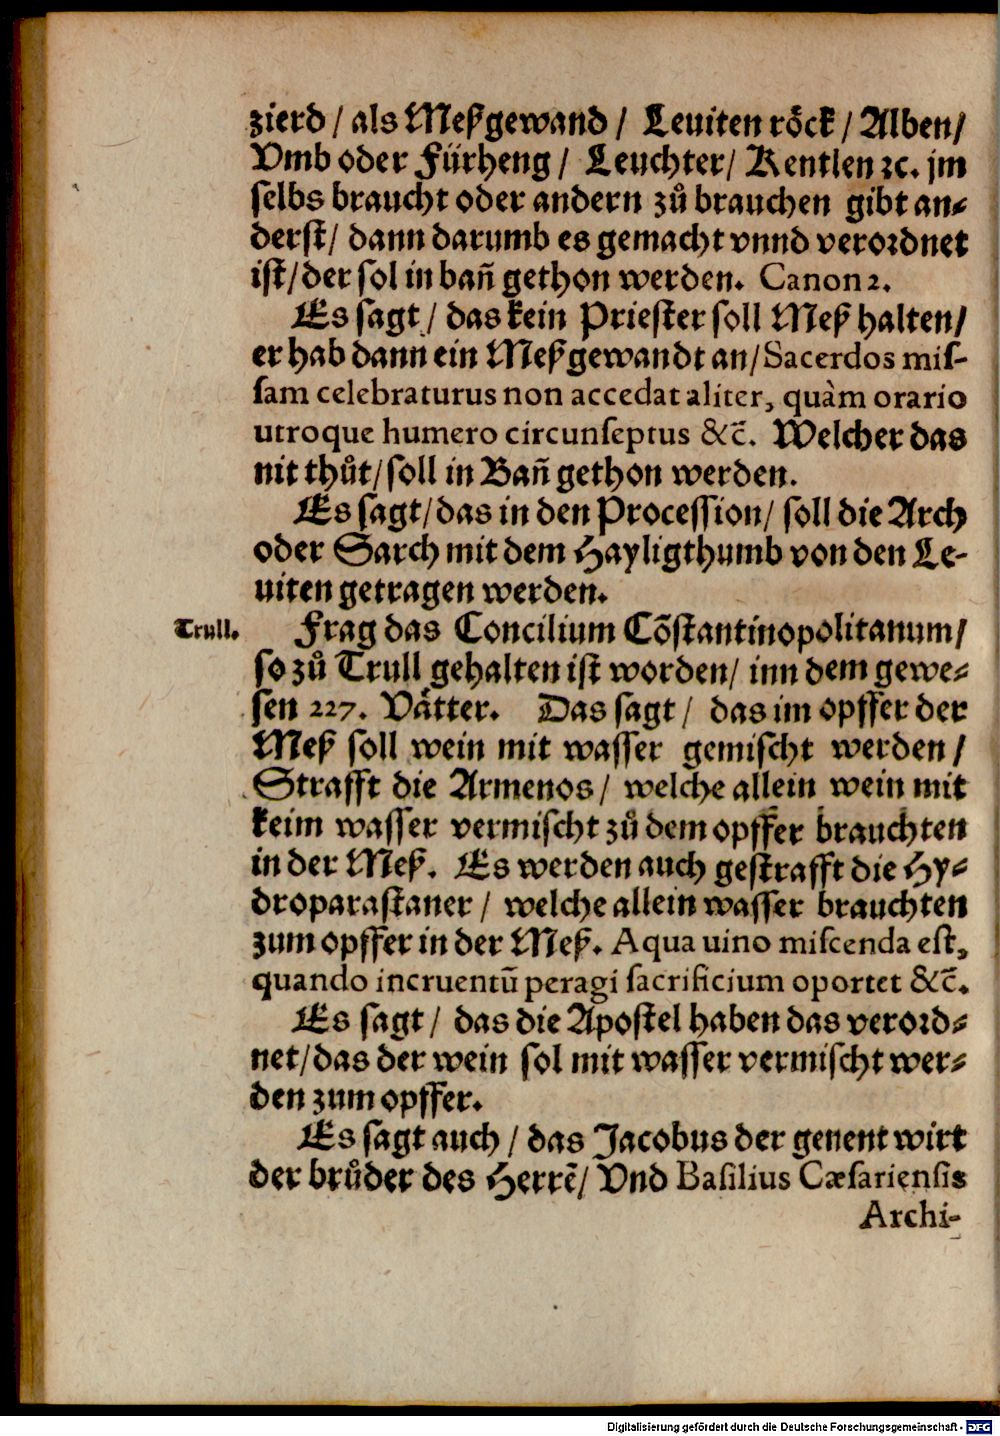 zierd / als Meßgewand / Leuiten röck / Alben /
Vmb oder Fürheng / Leuchter / Kentlen ꝛc. jm
selbs braucht oder andern zů brauchen gibt an⸗
derst / dann darumb es gemacht vnnd verordnet
ist / der sol in bañ gethon werden. Canon 2.
Es sagt / das kein Priester soll Meß halten /
er hab dann ein Meßgewandt an / Sacerdos mis-
sam celebraturus non accedat aliter, quàm orario
utroque humero circunseptus &c̃. Welcher das
nit thůt / soll in Bañ gethon werden.
Es sagt / das in den Procession / soll die Arch
oder Sarch mit dem Hayligthumb von den Le-
uiten getragen werden.
Trull. Frag das Concilium Cõstantinopolitanum /
so zů Trull gehalten ist worden / inn dem gewe⸗
sen 227. Vätter. Das sagt / das im opffer der
Meß soll wein mit wasser gemischt werden /
Strafft die Armenos / welche allein wein mit
keim wasser vermischt zů dem opffer brauchten
in der Meß. Es werden auch gestrafft die Hy⸗
droparastaner / welche allein wasser brauchten
zum opffer in der Meß. Aqua uino miscenda est,
quando incruentũ peragi sacrificium oportet &c̃.
Es sagt / das die Apostel haben das verord⸗
net / das der wein sol mit wasser vermischt wer⸗
den zum opffer.
Es sagt auch / das Jacobus der genent wirt
der brůder des Herrẽ / Vnd Basilius Cæsariensis
Archi-
Digitalisierung gefördert durch die Deutsche Forschungsgemeinschaft - DFG